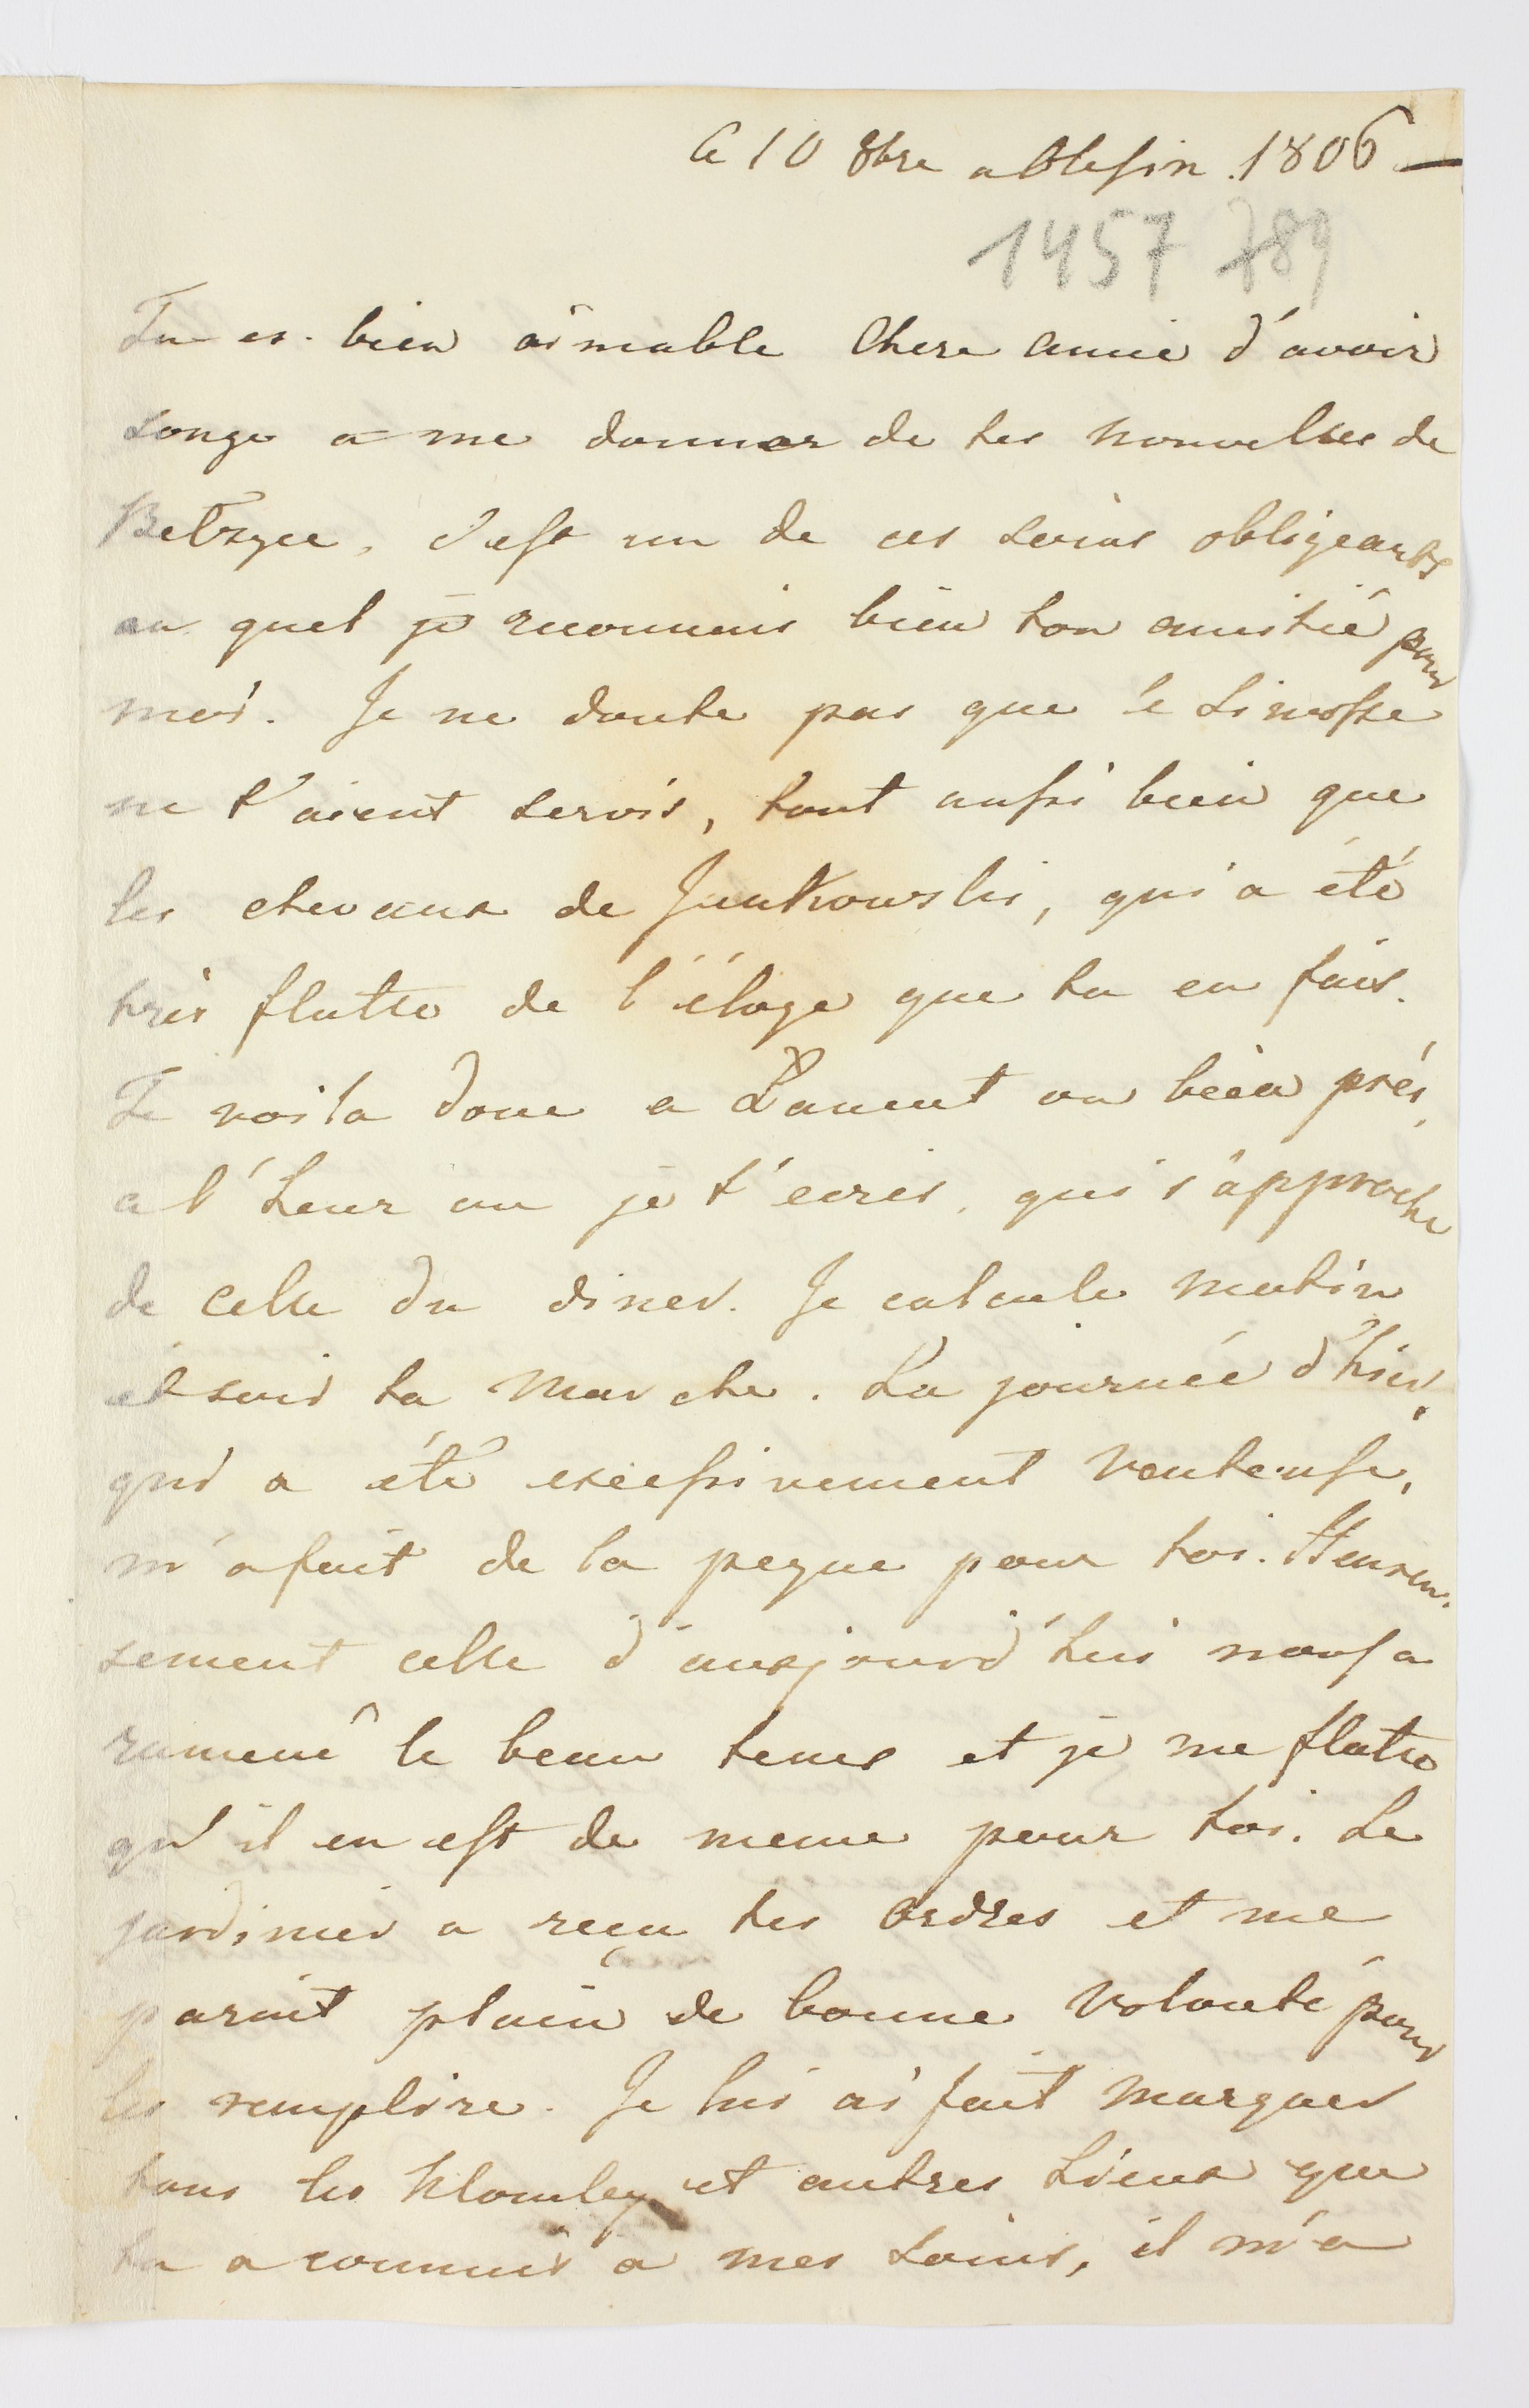 Ce 10 8bre a Olesin 1806 —
1457 789
Tu es bien aimable Chere amie d'avoir
songe a me donner de tes nouvelles de
Betzyce, c'est un de ces soins obligeants
au quel je reconnais bien ton amitié pour
moi. Je ne doute pas que le
ne t'aient servis, tout aussi bien que
les chevaux de Jankowski, qui a été
très flatté de l'éloge que tu en fais.
Te voila donc a Lancut ou bien près,
a l'heur ou je t'ecris, qui s'approche
de celle du diner. Je calcule matin
et soir ta marche. La journée d'hier,
qui a été excessivement venteuse,
m'a fait de la peyne pour toi. Heureu-
sement celle d'aujourd'hui nous a
ramené le beau tems et je me flatte
qu'il en est de meme pour toi. Le
jardinier a reçu tes ordres et me
parait plain de bonne volonté pour
les remplire. Je lui ai fait marquer
tous les Klomby et autres Lieux que
tu a commis a mes soins, il m'a